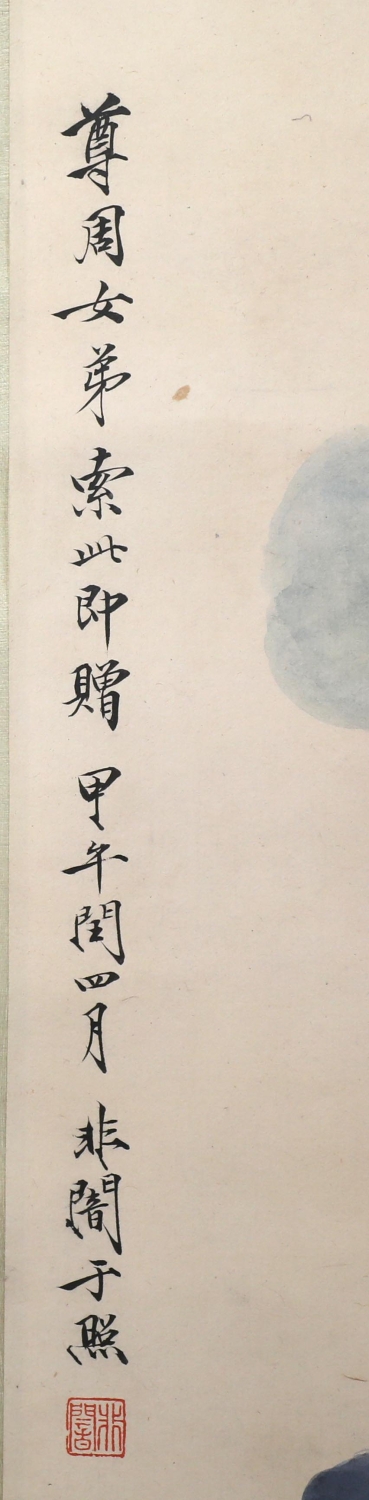 尊周女弟索此即贈甲午閏四月非闇于照
非闇